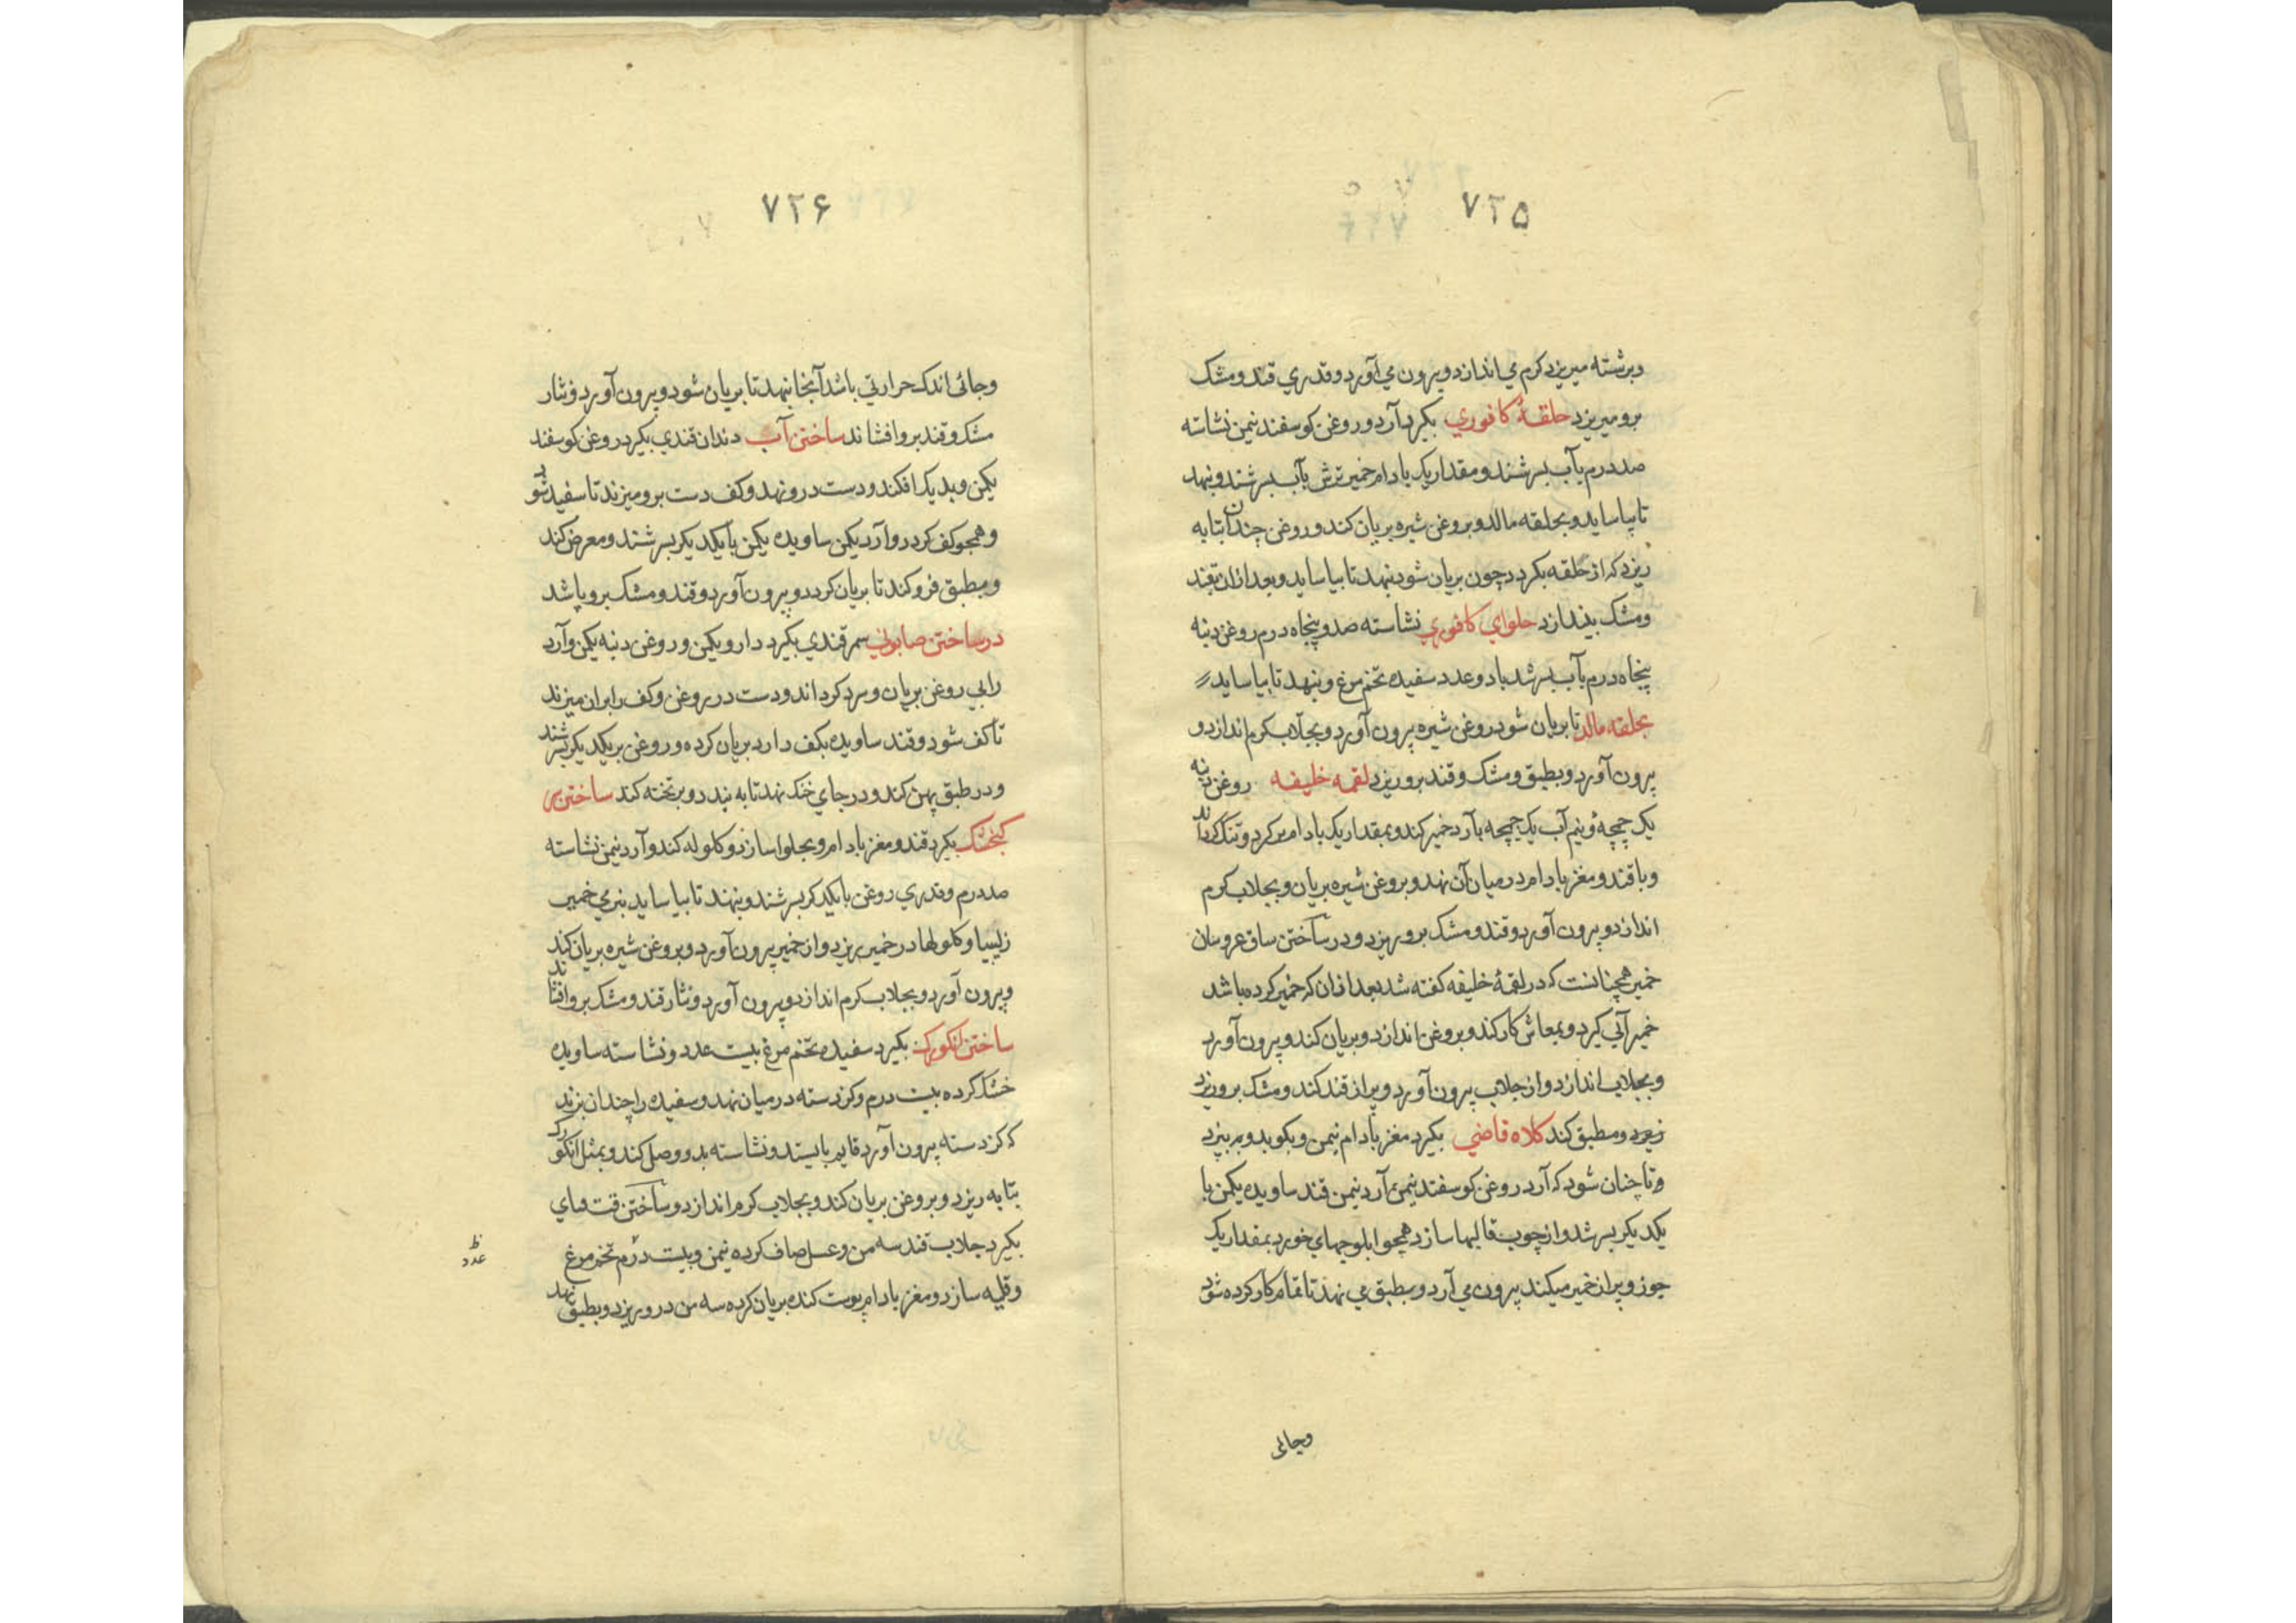 ۷۲۵
وبرشته میریزد کرم می اندازد و بیرون می آورد و قدری قند و مشک
برو میریزد حلقهٔ کافوری بکیرد آرد و روغن کوسفند نیمن نشاسته
صد درم بآب بسرشند و مقدار یک بادام خمیر ترش بآب بسرشند و بنهد
تا بیاساید و بحلقه مالد و بروغن شیره بریان کند و روغن چندان بتابه
ریزد که از حلقه بکردد چون بریان شود بنهد تا بیاساید و بعد ازان بقند
و مشک بیندازد حلوای کافوری نشاسته صد و پنجاه درم روغن دنبه
پنجاه درم بآب بسرشد با دو عدد سفیده تخم مرغ و بنهد تا بیاساید
بحلقه مالد تا بریان شود روغن شیره بیرون آورد و بجلاب کرم اندازد و
بیرون آورد و بطبق و مشک و قند برو ریزد لقمه خلیفه روغن دنبه
یک چمچهٔ و نیم آب یک چمچه بآرد خمیر کند و بمقدار یک بادام بر کرد و تنک کرداند
و با قند و مغز بادام در میان آن نهد و بروغن شیره بریان و بجلاب کرم
اندازد و بیرون آورد و قند و مشک برو ریزد و در ساختن ساق عروسان
خمیر همچنانست که در لقمهٔ خلیفه کفته شد بعد ازان که خمیر کرده باشد
خمیر آبی کیرد و بمعاش کار کند و بروغن اندازد و بریان کند و بیرون آورد
و بجلاب اندازد و از جلاب بیرون آورد و پر از قند کند و مشک برو ریزد
و مطبق کند کلاه قاضی بکیرد مغز بادام نیمن و بکوبد و به بیزد
و تا چنان شود که آرد روغن کوسفند نیمن آرد نیمن قند ساویده یکمن با
یکدیکر بسرشد و از چوب قالبها سازد همچو ابلوجهای خورد بمقدار یک
جوز و پر از خمیر میکند بیرون می آرد و بطبق می نهد تا تمام کار کرده شود
وجائی
۷۲۶
وجائی اندک حرارتی باشد آنجا بنهد تا بریان شود و بیرون آورد و نثار
مشک و قند برو افشاند ساختن آب دندان قندی بکیرد روغن کوسفند
یکمن و بدیک افکند و دست درو نهد و کف دست برو میزند تا سفید شود
و همچو کف کردد و آرد یکمن ساویده یکمن با یکدیکر بسرشند و معرض کند
و بطبق فرو کند تا بریان کردد و بیرون آورد و قند و مشک برو پاشد
در ساختن صابونی سمرقندی بکیرد دارو یکمن و روغن دنبه یکمن و آرد
را بی روغن بریان و سرد کرداند و دست در روغن و کف را بران میزند
تا کف شود و قند ساویده بکف دارد بریان کرده و روغن بریکدیکر بسرشند
و در طبق پهن کند و در جای خنک نهد تا به بندد و بر تخته کند ساختن سر
کنجشک بکیرد قند و مغز بادام و بحلوا سازد و کلوله کند و آرد نیمن نشاسته
صد درم و قدری روغن با یکدکر بسرشند و بنهند تا بیاساید بنرمی خمیر
زلیبیا و کلولها در خمیر بریزد و از خمیر بیرون آورد و بروغن شیره بریان کند
و بیرون آورد و بجلاب کرم اندازد و بیرون آورد و نثار قند و مشک برو افشاند
ساختن انکورک بکیرد سفیده تخم مرغ بیست عدد و نشاسته ساویده
خشک کرده بیست درم و کزدسته در میان نهد و سفیده را چندان بزند
که کزدسته بیرون آورد قایم بایستد و نشاسته بدو وصل کند و بمثل انکورک
بتابه ریزد و بروغن بریان کند و بجلاب کرم اندازد و ساختن قت مای
بکیرد جلاب قند سه من و عسل صاف کرده نیمن و بیست درم تخم مرغ
و قلیه سازد و مغز بادام پوست کنده بریان کرده سه من درو ریزد و بطبق نهد
ظ
عدد